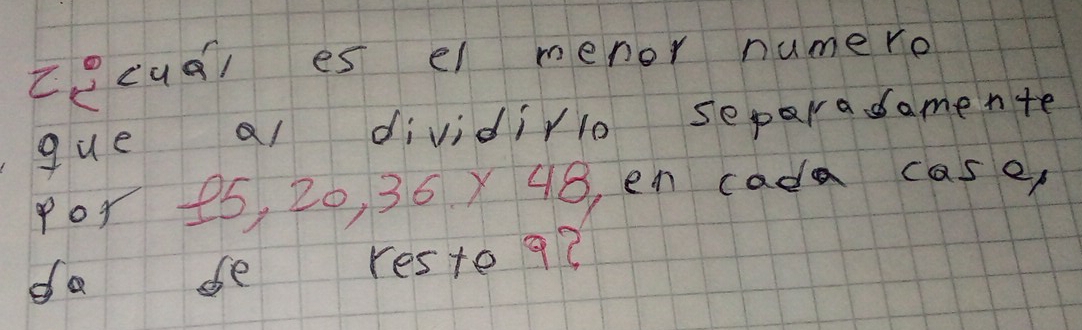 2¿cuál es el menor numero
que al dividirlo separadamente
por 15, 20, 36 y 48, en cada caso,
da de resto 9?